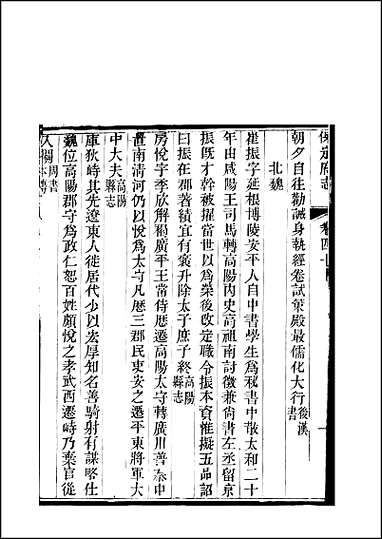 保定府志 卷四
朝夕自往勸誡身執經卷試策殿最儒化大行後漢書
北魏
崔振字延根博陵安平人自中書學生爲秘書中散太和二十
年由咸陽王司馬轉高陽內史高祖南討徵兼尙書左丞留京
振旣才幹被擢當世以爲榮後改定職令振本資惟擬五品詔
曰振在郡著績宜有褒升除太子庶子終高陽縣志
房悅字季欣解褐廣平王常侍歷遷高陽太守轉廣川普泰中
置南淸河仍以悅爲太守凡歷三郡民吏安之遷平東將軍大
中大夫高陽縣志
厙狄峙其先遼東人徙居代少以宏厚知名善騎射有謀略仕
魏位高陽郡守爲政仁恕百姓頗悅之孝武西遷峙乃棄官從
入關周書本傳